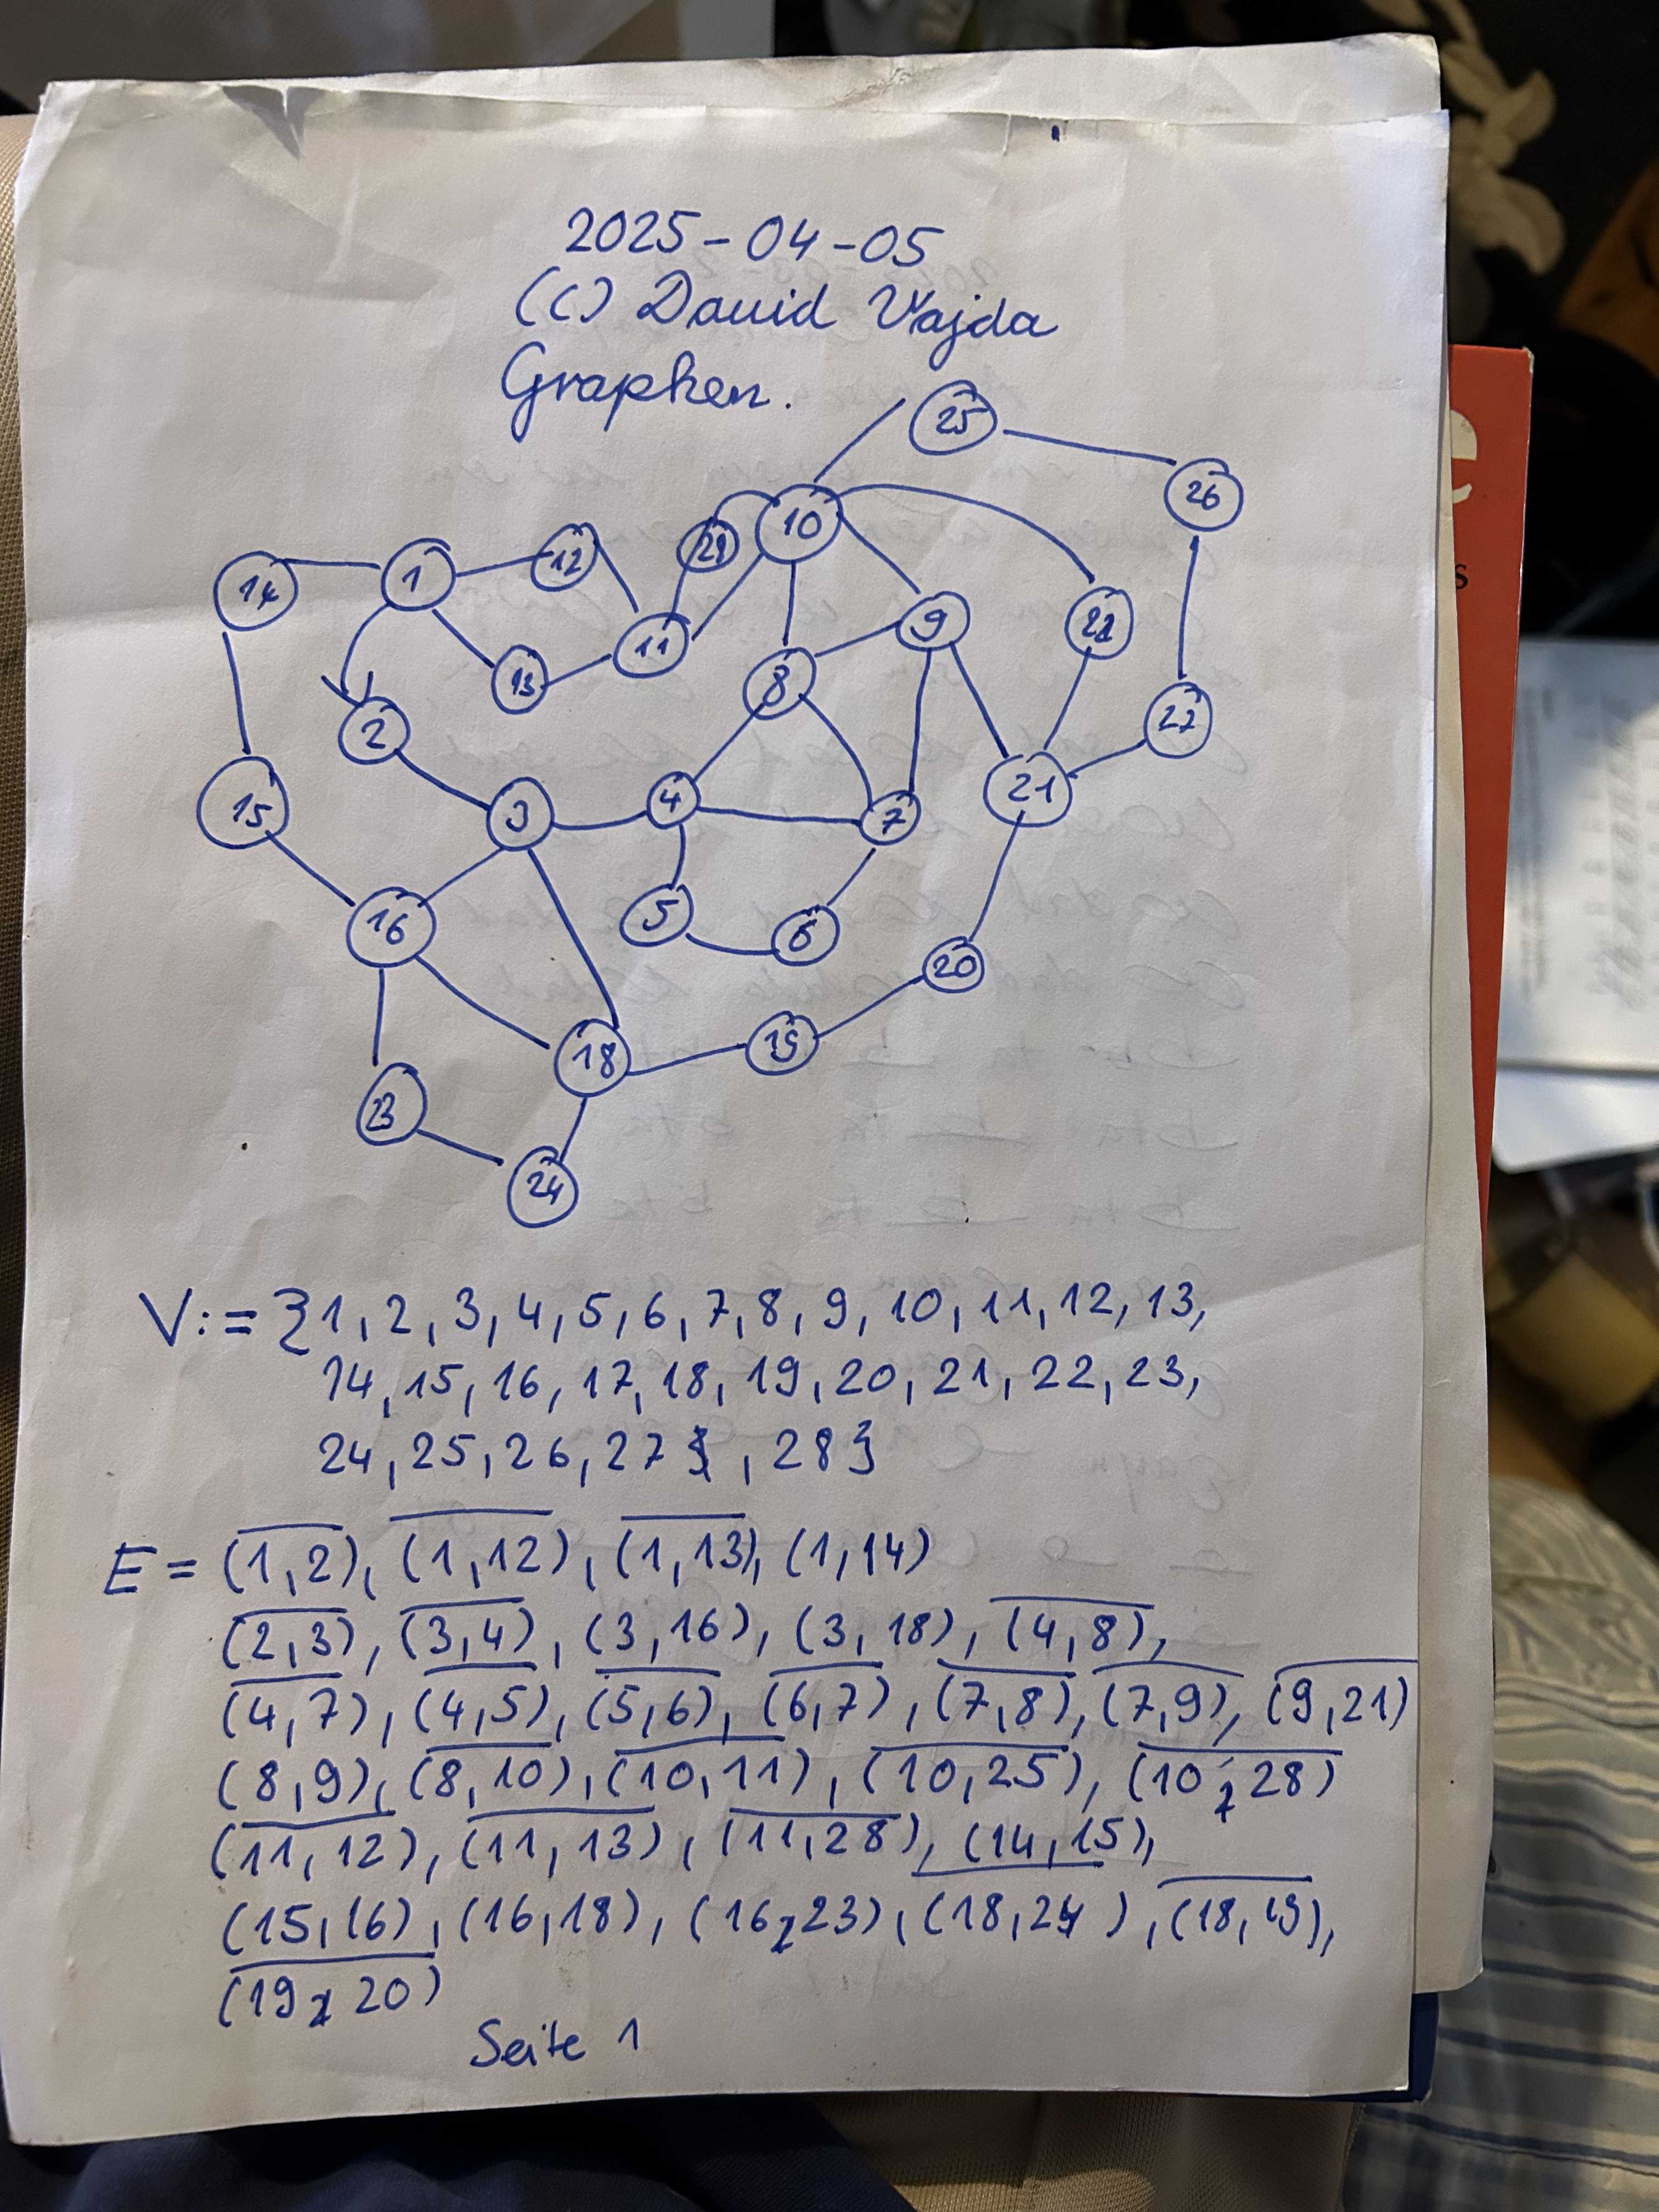 2025-04-05
(C) David Vajda
Graphen.
25
26
10
12
28
14
1
9
22
11
13
8
2
27
21
15
3
4
7
16
5
6
20
18
19
23
24
V:={1, 2, 3, 4, 5, 6, 7, 8, 9, 10, 11, 12, 13,
14, 15, 16, 17, 18, 19, 20, 21, 22, 23,
24, 25, 26, 27, 28}
E = (1,2), (1,12), (1,13), (1,14)
(2,3), (3,4), (3,16), (3,18), (4,8),
(4,7), (4,5), (5,6), (6,7), (7,8), (7,9), (9,21)
(8,9), (8,10), (10,11), (10,25), (10,28)
(11,12), (11,13), (11,28), (14,15),
(15,16), (16,18), (16,23), (18,24), (18,19),
(19,20)
Seite 1